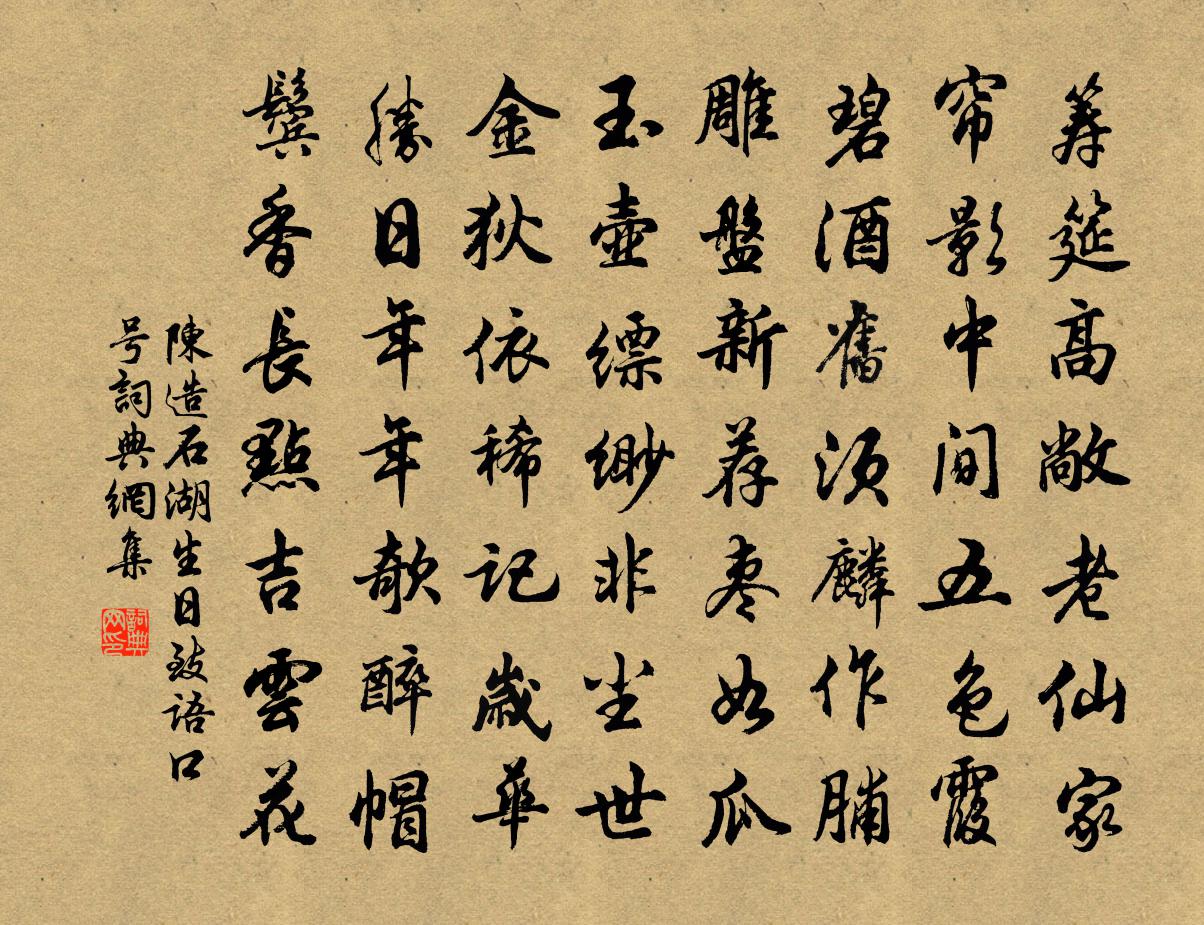 筹筵高敞老仙家
帘影中間五色霞
碧酒舊須麟作脯
雕盤新荐枣如瓜
玉壺縹緲非尘世
金狄依稀記歲華
勝日年年欹醉帽
鬢香長點吉雲花
陳造石湖生日致語口
号詞典網集
詞典
网印